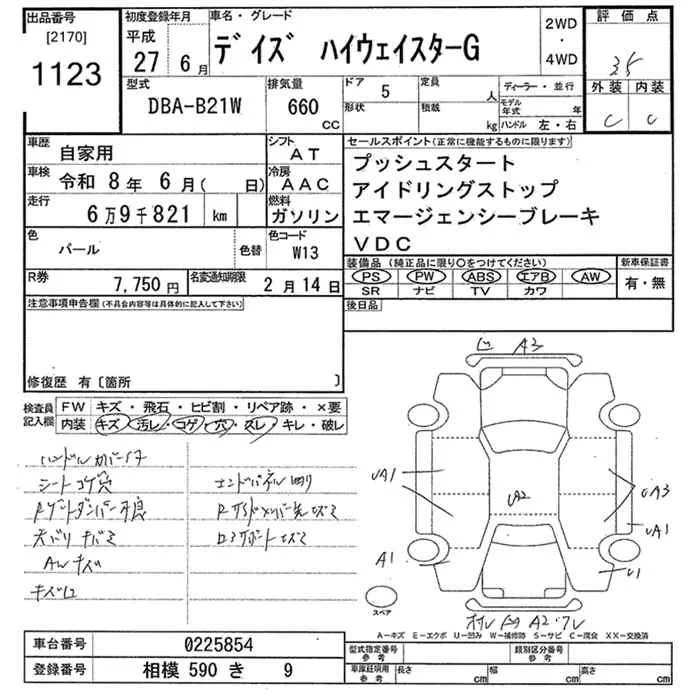 出品番号
[2170]
1123
初度登録年月
平成
27 6月
車名・グレード
デイズ ハイウェイスターG
2WD
・
4WD
評価点
35
外装 内装
C C
型式
DBA-B21W
排気量
660
cc
ドア 5
形状
定員 人
積載 kg
ディーラー・並行
モデル年式 年
ハンドル 左・右
車歴
自家用
シフト
AT
車検
令和 8年 6月( 日)
冷房
AAC
走行
6万9千821 km
燃料
ガソリン
色
パール
色替
色コード
W13
R券
7,750円
名変通知期限
2月14日
セールスポイント(正常に機能するものに限ります)
プッシュスタート
アイドリングストップ
エマージェンシーブレーキ
VDC
装備品(純正品に限り○をつけてください)
PS PW ABS エアB AW
SR ナビ TV カワ
新車保証書
有・無
後日品
注意事項申告欄(不具合内容等は具体的に記入して下さい)
修復歴 有〔箇所 〕
検査員記入欄
FW キズ・飛石・ヒビ割・リペア跡・×要
内装 キズ・汚レ・コゲ・穴・スレ・キレ・破レ
ハンドルカバー付
シートコゲ穴
Rゲートダンパー不良
天バリキバミ
AWキズ
エンドパネル凹り
A3
UA1
UA3
UA1
A2
A1
U1
スペア
A2
A－キズ E－エクボ U－凹み W－補修跡 S－サビ C－腐食 XX－交換済
車台番号 0225854
登録番号 相模 590 き 9
型式指定番号
参考
類別区分番号
参考
車庫証明用
参考
長さ cm 幅 cm 高さ cm